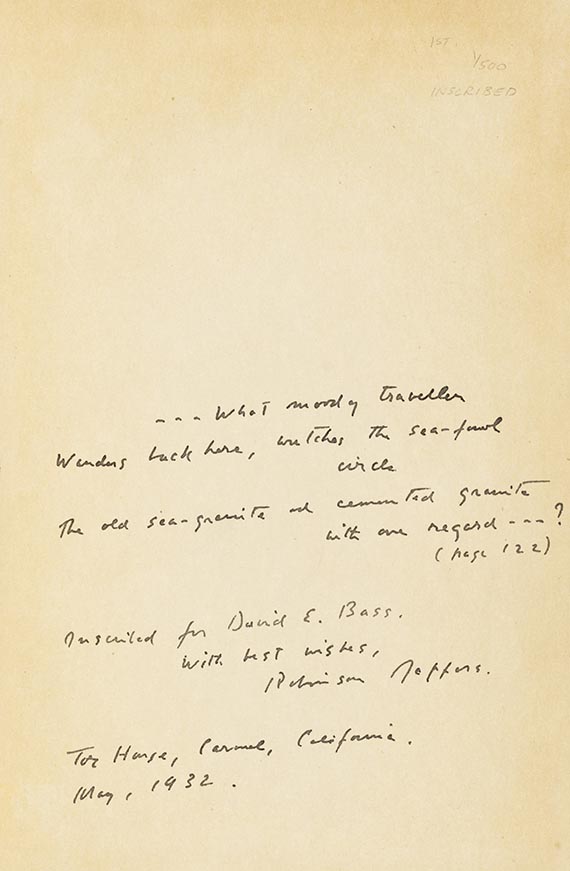 1ST
1/500
INSCRIBED
--- What moody traveller
Wanders back here, watches the sea-fowl
circle
The old sea-granite and cemented granite
with one regard ---?
(page 122)
Inscribed for David E. Bass.
With best wishes,
Robinson Jeffers.
Tor House, Carmel, California.
May, 1932.